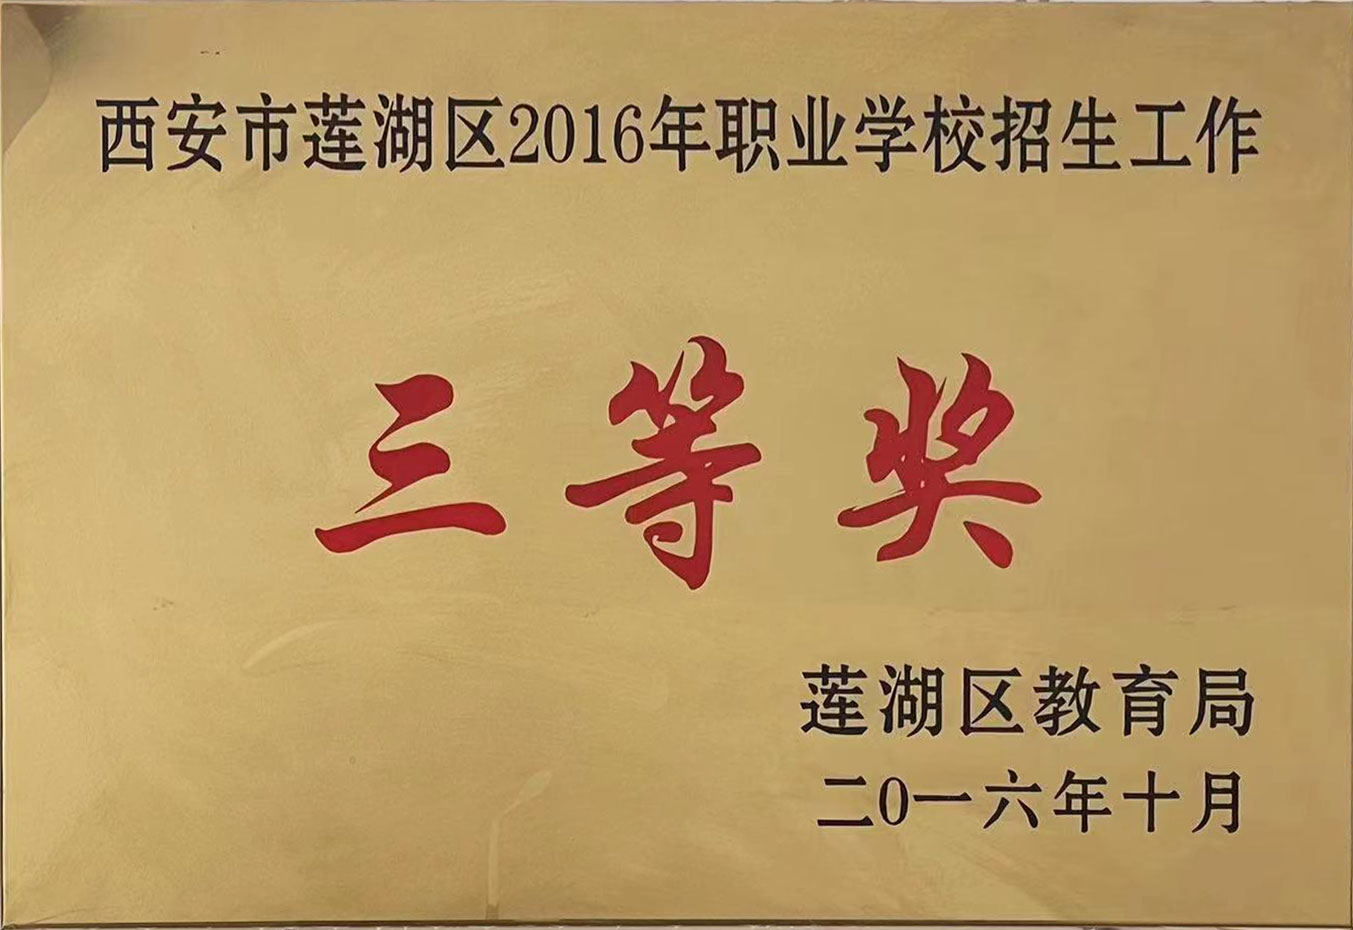 西安市莲湖区2016年职业学校招生工作
三等奖
莲湖区教育局
二0一六年十月